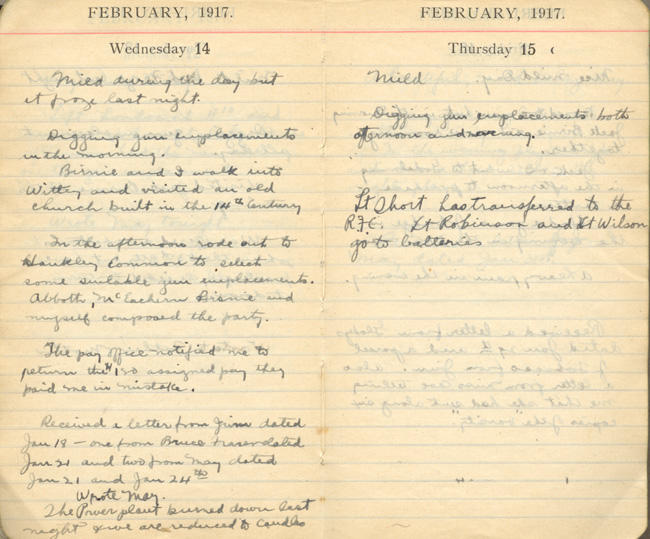 FEBRUARY, 1917.
Wednesday 14
Mild during the day but
it froze last night.
Digging gun emplacements
in the morning.
Birnie and I walk into
Witley and visited an old
church built in the 14th Century
In the afternoon rode out to
Hankley Common to select
some suitable gun emplacements.
Abbott, McEachern Birnie and
myself composed the party.
The pay office notified me to
return the 120 assigned pay they
paid me in mistake.
Received a letter from Jim dated
Jan 18 - one from Bruce Fraser dated
Jan 21 and two from May dated
Jan 21 and Jan 24th
Wrote May.
The Power plant burned down last
night & we are reduced to candles
FEBRUARY, 1917.
Thursday 15
Mild
Digging gun emplacements both
afternoon and evening.
Lt Short has transferred to the
R.F.C. Lt Robinson and Lt Wilson
go to batteries